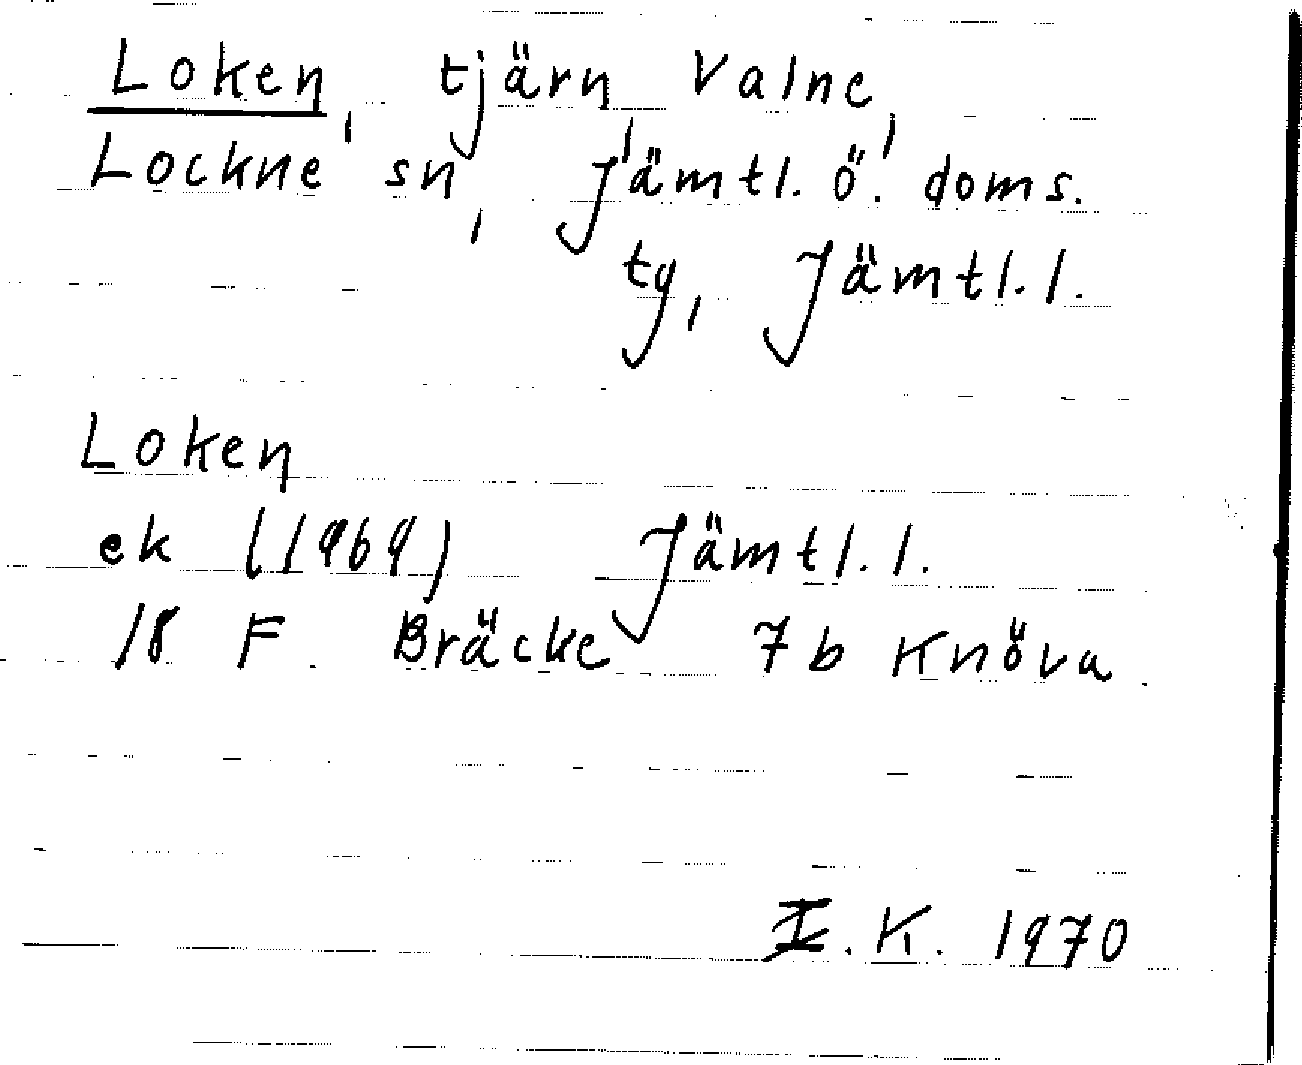 Loken, tjärn, Valne,
Lockne sn, Jämtl. ö. doms.
ty, Jämtl. l.
Loken
ek (1969) Jämtl. l.
18 F. Bräcke 7b Knöva
I. K. 1970